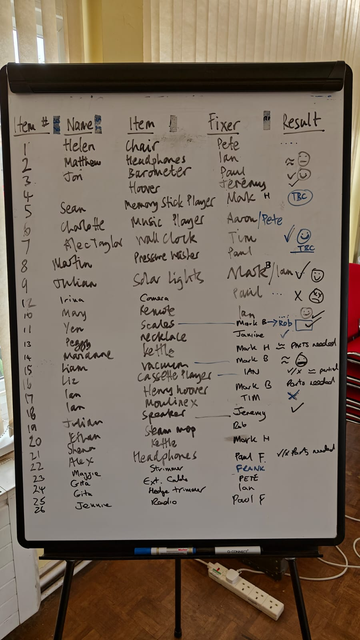 Item # Name Item Fixer Result
1 Helen Chair Pete ....
2 Matthew Headphones Ian ≈
3 Jon Barometer Paul ✓
4 Hoover Jeremy ✓
5 Sean Memory Stick Player Mark H TBC
6 Charlotte Music Player Aaron/Pete
7 Alec Taylor Wall Clock Tim ✓
8 Martin Pressure Washer Paul TBC
9 Julian Solar Lights Mark B/Ian ✓
12 Irina Camera Paul ... X
10 Mary Remote Ian ...
11 Yen Scales Mark B → Rob ✓
13 Peggy necklace Janine ✓
14 Marianne Kettle Mark H ≈ Parts needed
15 Liam Vacuum Mark B ≈
16 Liz Cassette Player IAN
17 Ian Henry hoover Mark B Parts needed
18 Ian Moulinex TIM X
19 Julian Speaker Jeremy ✓
20 Ethan Steam mop Rob
21 Kettle Mark H
22 Alex Headphones Paul F. Parts needed
23 Maggie Strimmer FRANK
24 Gita Ext. Cable PETE
25 Gita Hedge trimmer Ian
26 Jennie Radio Paul F